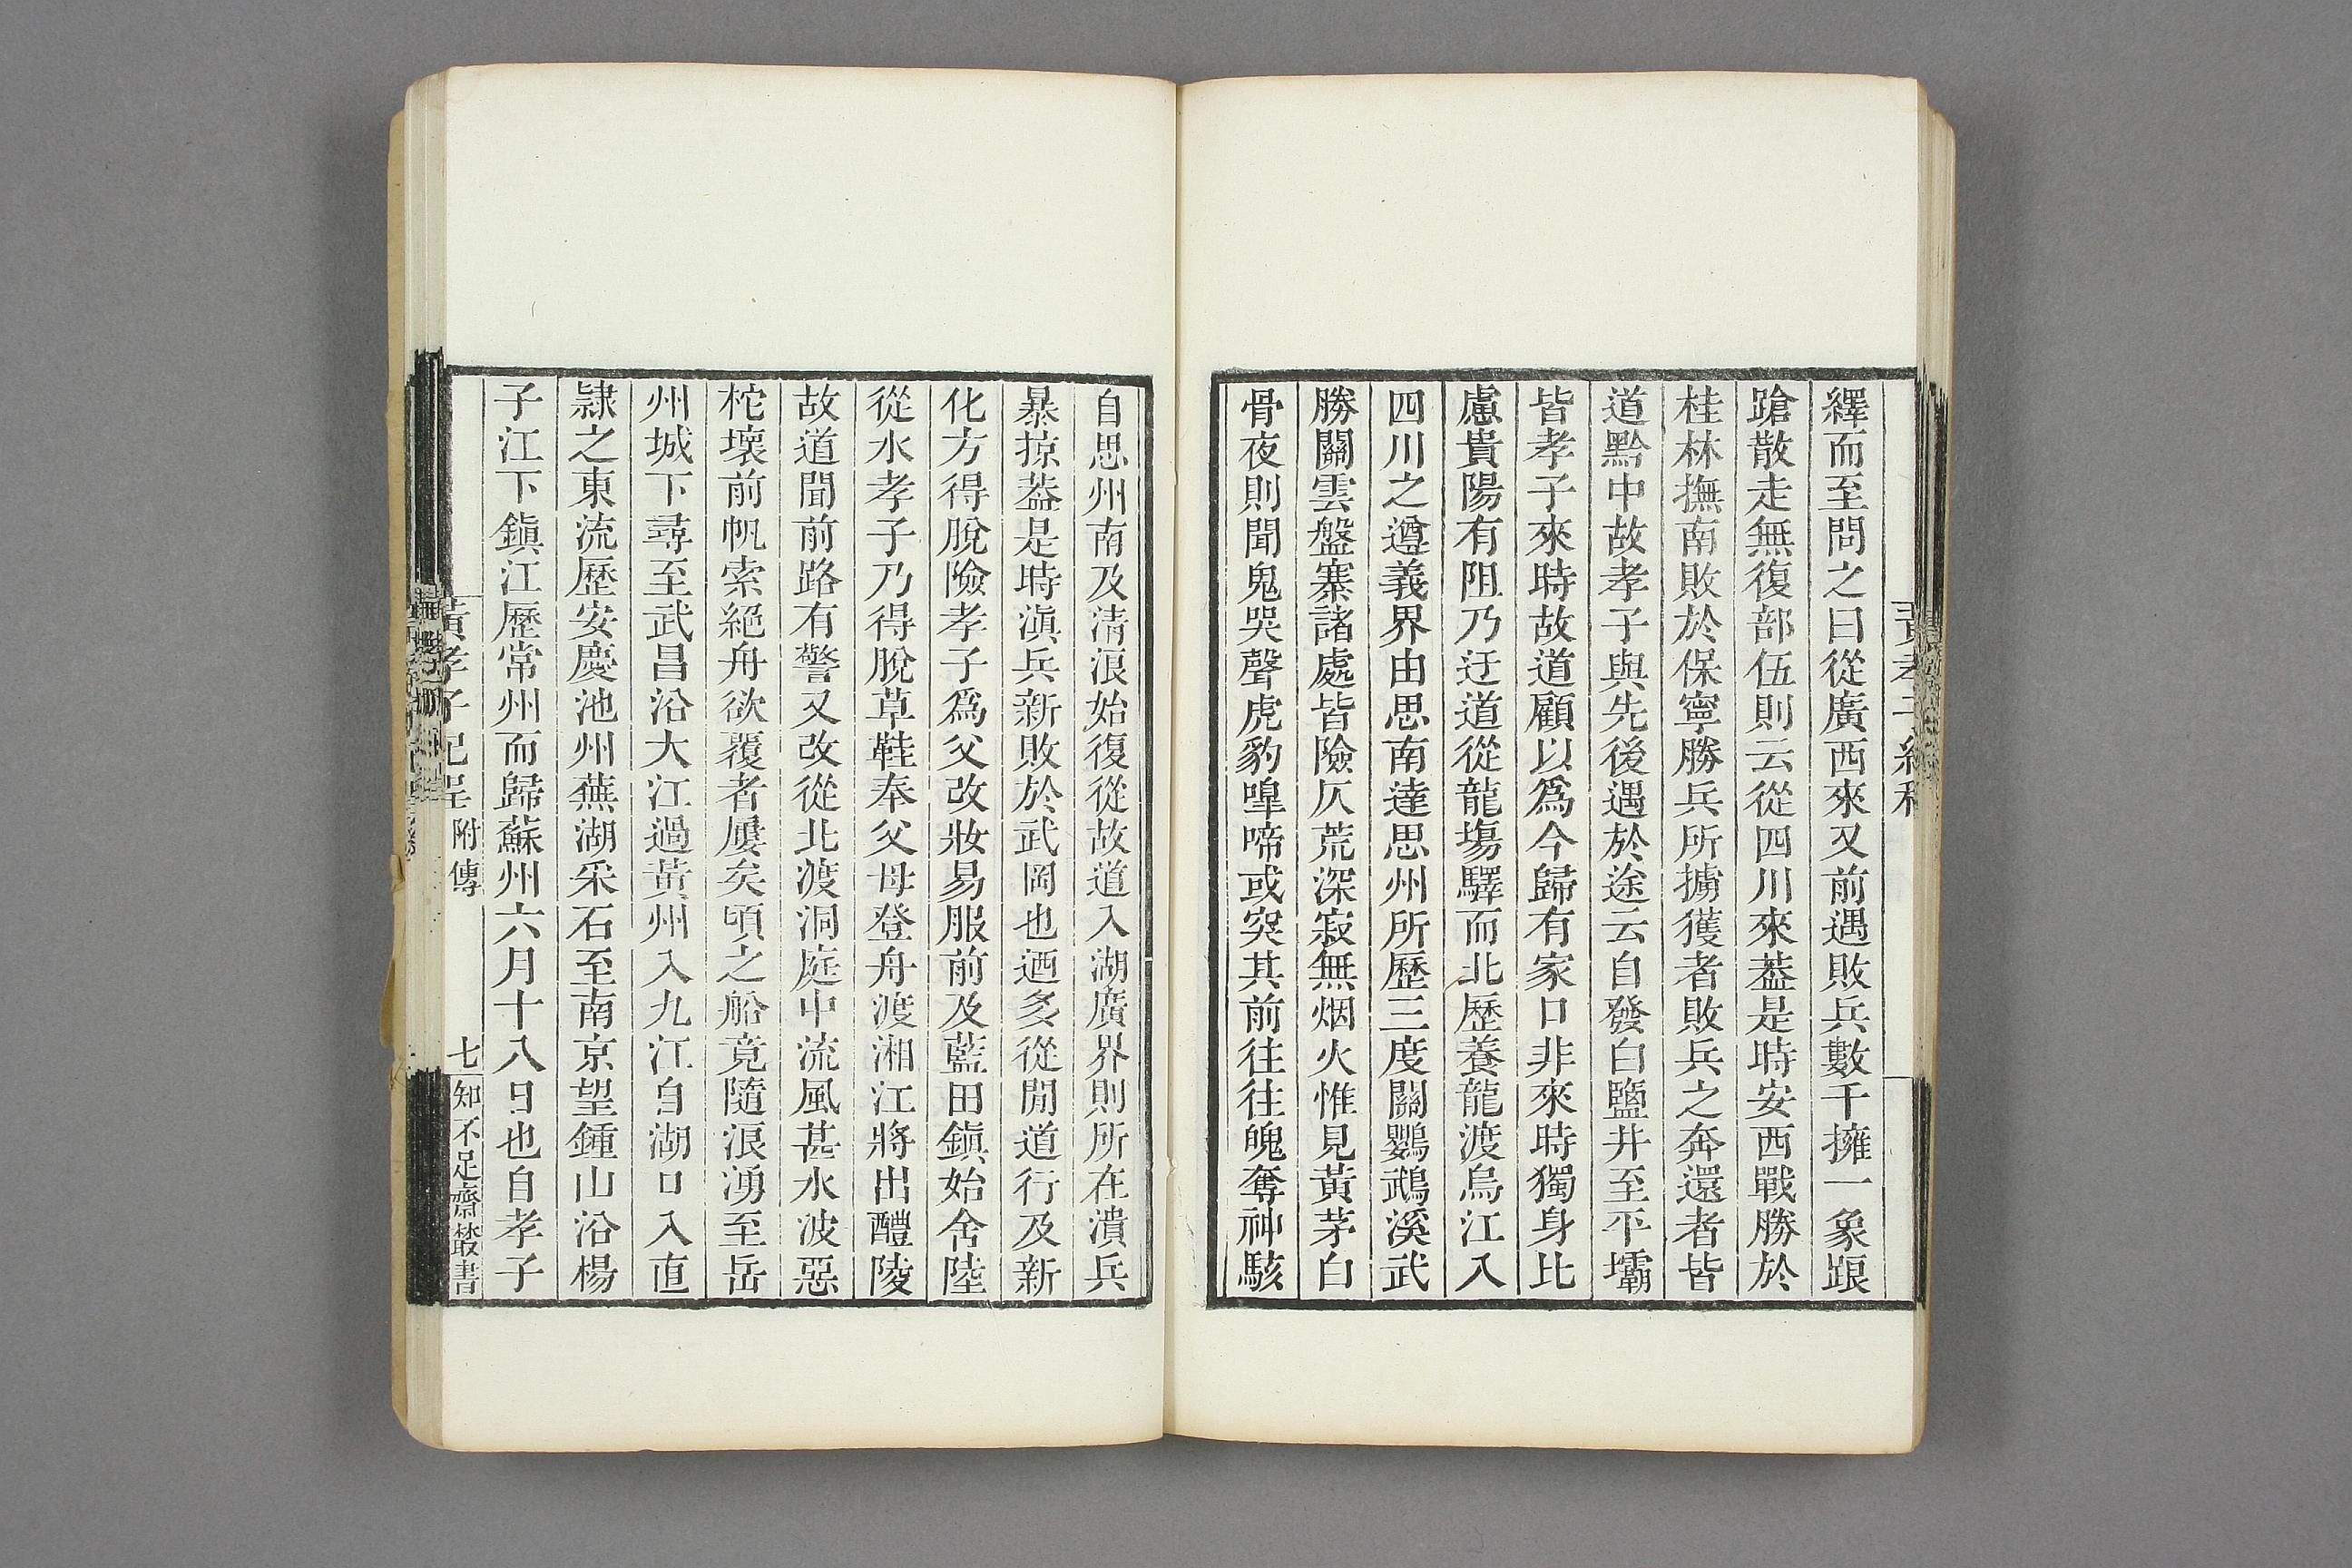 繹而至問之曰從廣西來又前遇敗兵數千擁一象踉
蹌散走無復部伍則云從四川來葢是時安西戰勝於
桂林撫南敗於保寧勝兵所擄獲者敗兵之奔還者皆
道黔中故孝子與先後遇於途云自發白鹽井至平壩
皆孝子來時故道顧以爲今歸有家口非來時獨身比
慮貴陽有阻乃迂道從龍塲驛而北歷養龍渡烏江入
四川之遵義界由思南達思州所歷三度關鸚鵡溪武
勝關雲盤寨諸處皆險仄荒深寂無烟火惟見黃茅白
骨夜則聞鬼哭聲虎豹嘷啼或突其前往往魄奪神駭
自思州南及清浪始復從故道入湖廣界則所在潰兵
暴掠葢是時滇兵新敗於武岡也迺多從閒道行及新
化方得脫險孝子爲父改妝易服前及藍田鎭始舍陸
從水孝子乃得脫草鞋奉父母登舟渡湘江將出醴陵
故道聞前路有警又改從北渡洞庭中流風甚水波惡
柁壞前帆索絕舟欲覆者屢矣頃之船竟隨浪湧至岳
州城下尋至武昌沿大江過黃州入九江自湖口入直
隸之東流歷安慶池州蕪湖采石至南京望鍾山沿楊
子江下鎭江歷常州而歸蘇州六月十八日也自孝子
黃孝子紀程 附傳 七 知不足齋叢書